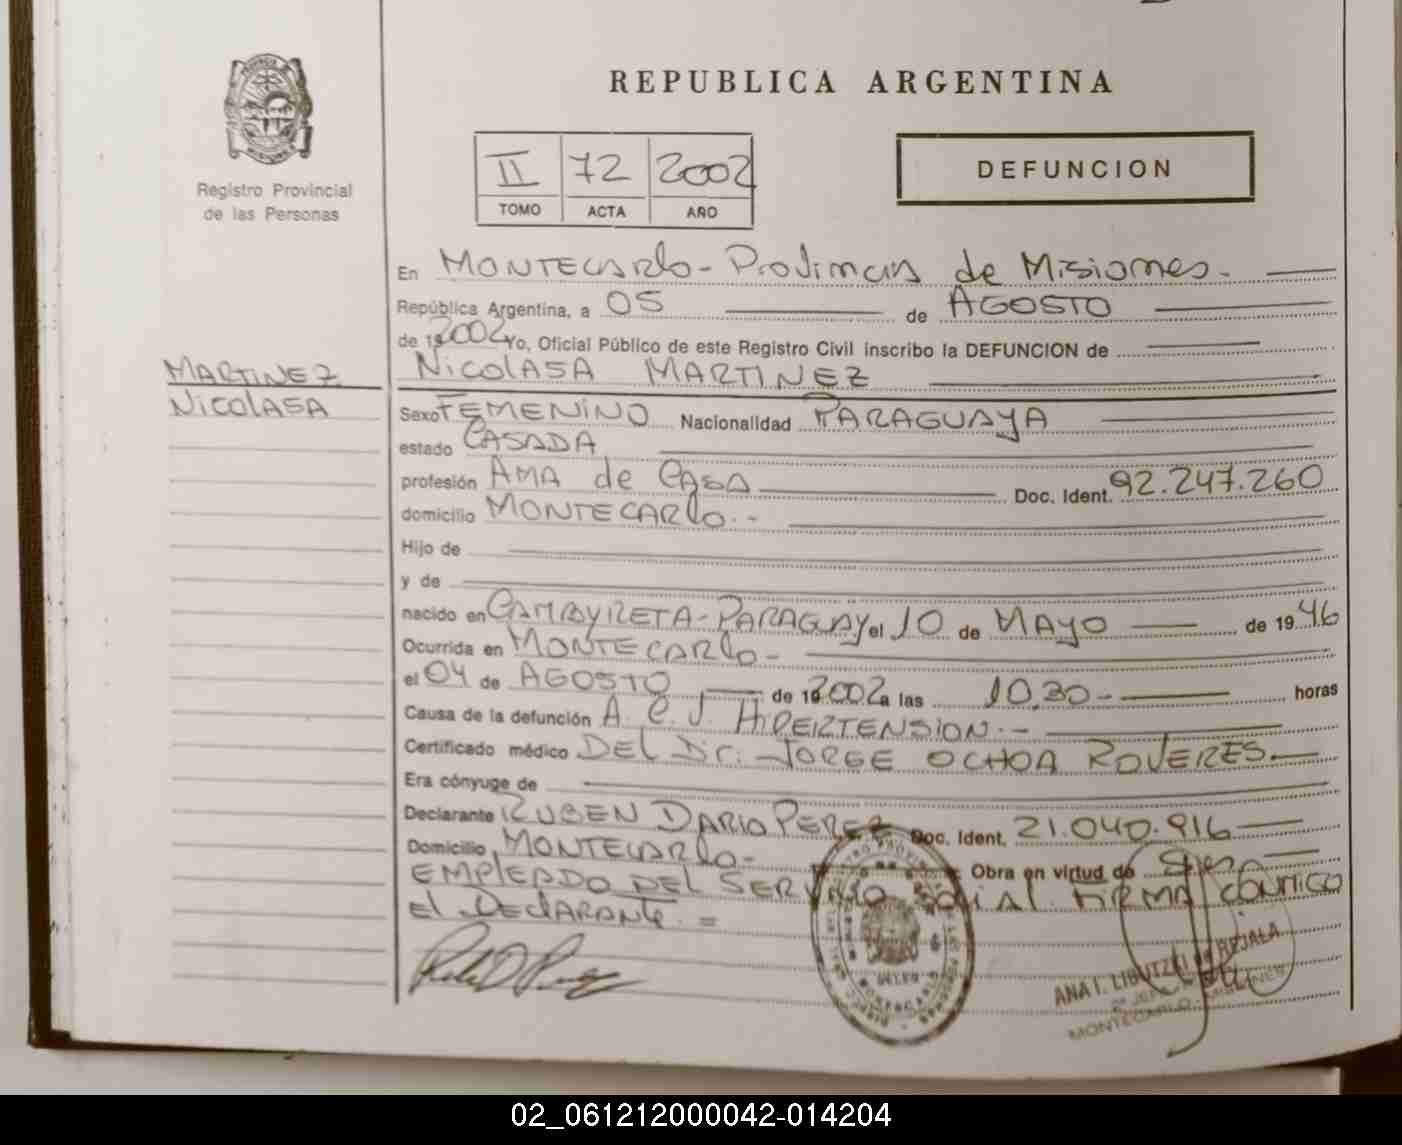 REPUBLICA ARGENTINA
Registro Provincial
de las Personas
II 72 2002
TOMO ACTA AÑO
DEFUNCION
En MONTECARLO - Provincia de Misiones.-
República Argentina, a 05 de AGOSTO
de 2002 Yo, Oficial Público de este Registro Civil inscribo la DEFUNCION de
MARTINEZ
NICOLASA
NICOLASA MARTINEZ
Sexo FEMENINO Nacionalidad PARAGUAYA
estado CASADA
profesión AMA de CASA Doc. Ident. 92.247.260
domicilio MONTECARLO.-
Hijo de
y de
nacido en CAMBYRETA - PARAGUAY el 10 de MAYO de 1946
Ocurrida en MONTECARLO -
el 04 de AGOSTO de 2002 a las 10,30 - horas
Causa de la defunción A. C. V. HIPERTENSION.-
Certificado médico DEL Dr. JORGE OCHOA ROVERES.
Era cónyuge de
Declarante RUBEN DARIO PEREZ Doc. Ident. 21.040.916
Domicilio MONTECARLO - Obra en virtud de
EMPLEADO DEL SERVICIO SOCIAL. FIRMA CONMIGO
El DECLARANTE. =
ANA I. REJALA
MONTECARLO - MISIONES
02_061212000042-014204